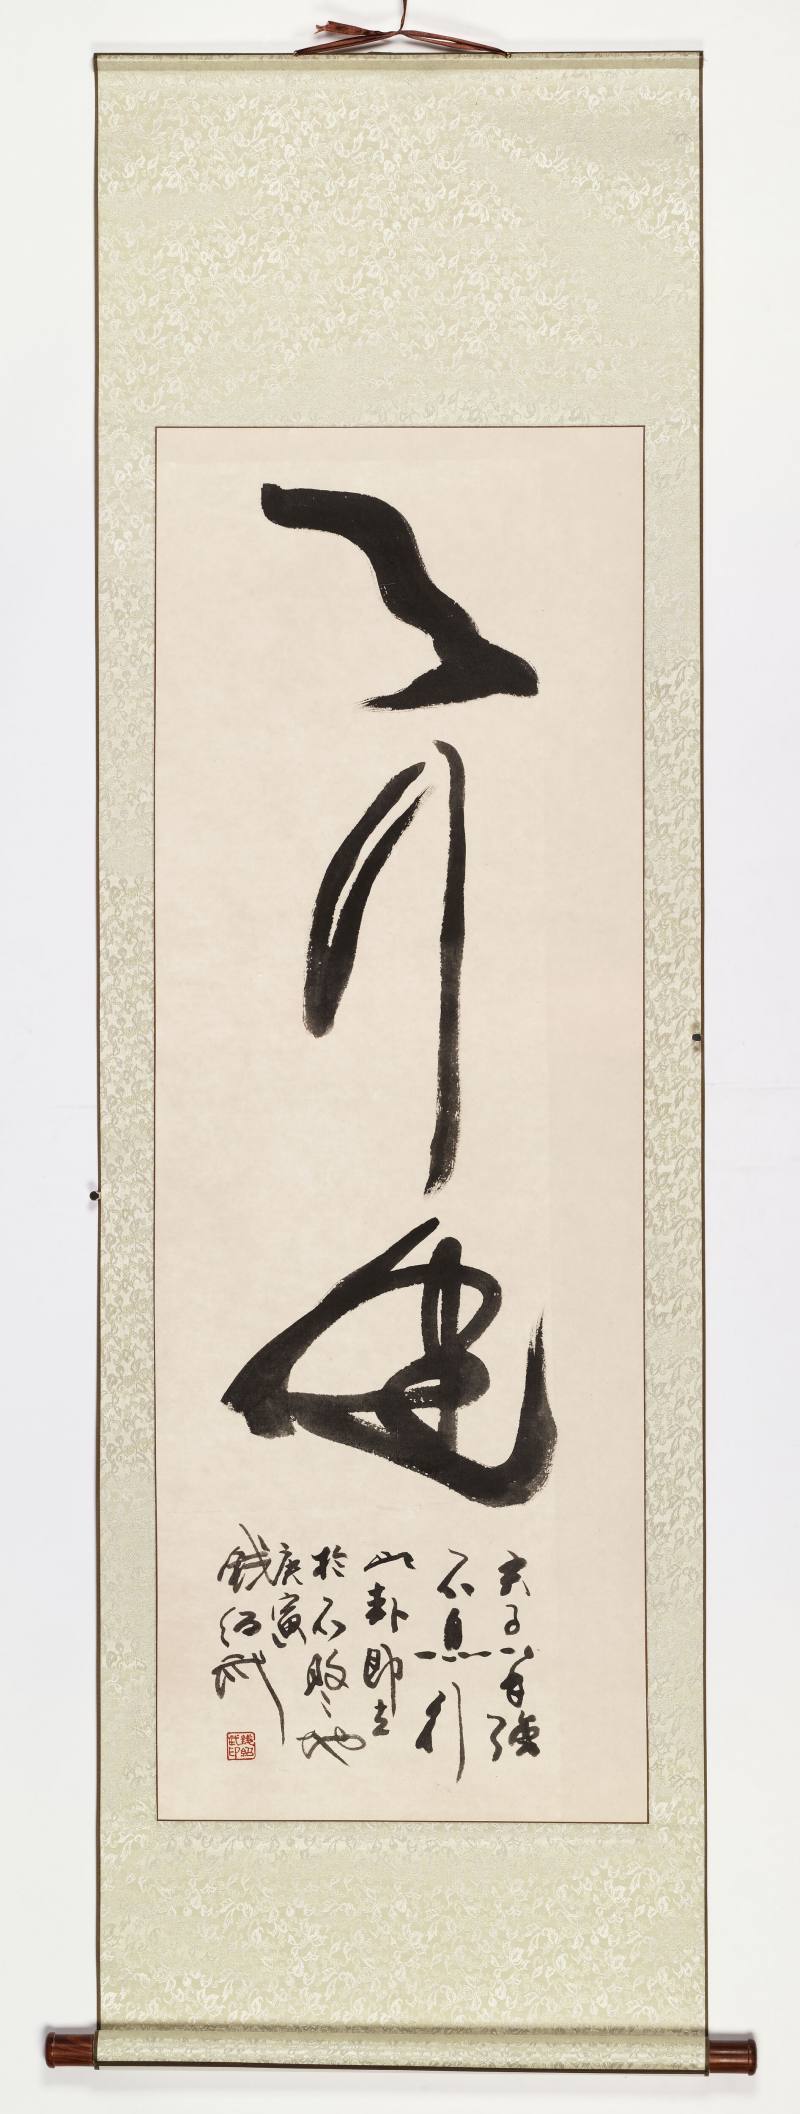 天行健
君子以自強
不息行
此卦即立
於不敗之地
庚寅
錢紹武
錢紹武印